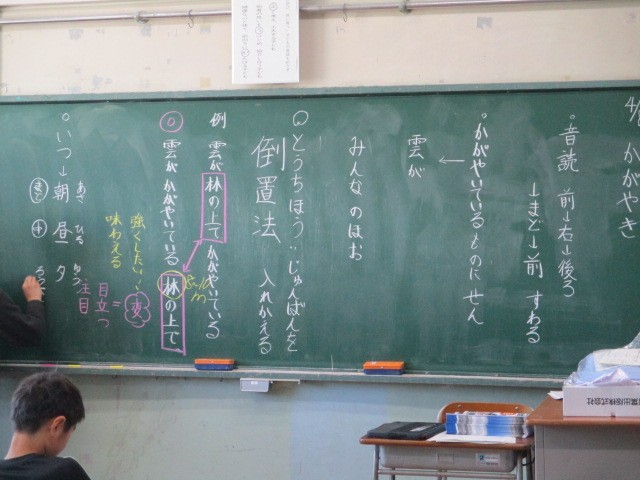 かがやき
。音読 前→右→後ろ
→まど→前 すわる
。かがやいているものに せん
雲が
みんなのほお
とうちほう…じゅんばんを
倒置法 入れかえる
例 雲が林の上でかがやいている
◎ 雲がかがやいている林の上で
8〜10m
強くしたい
味わえる
変
= 目立つ
注目
。いつ→朝 昼 夕
あさ ひる ゆう